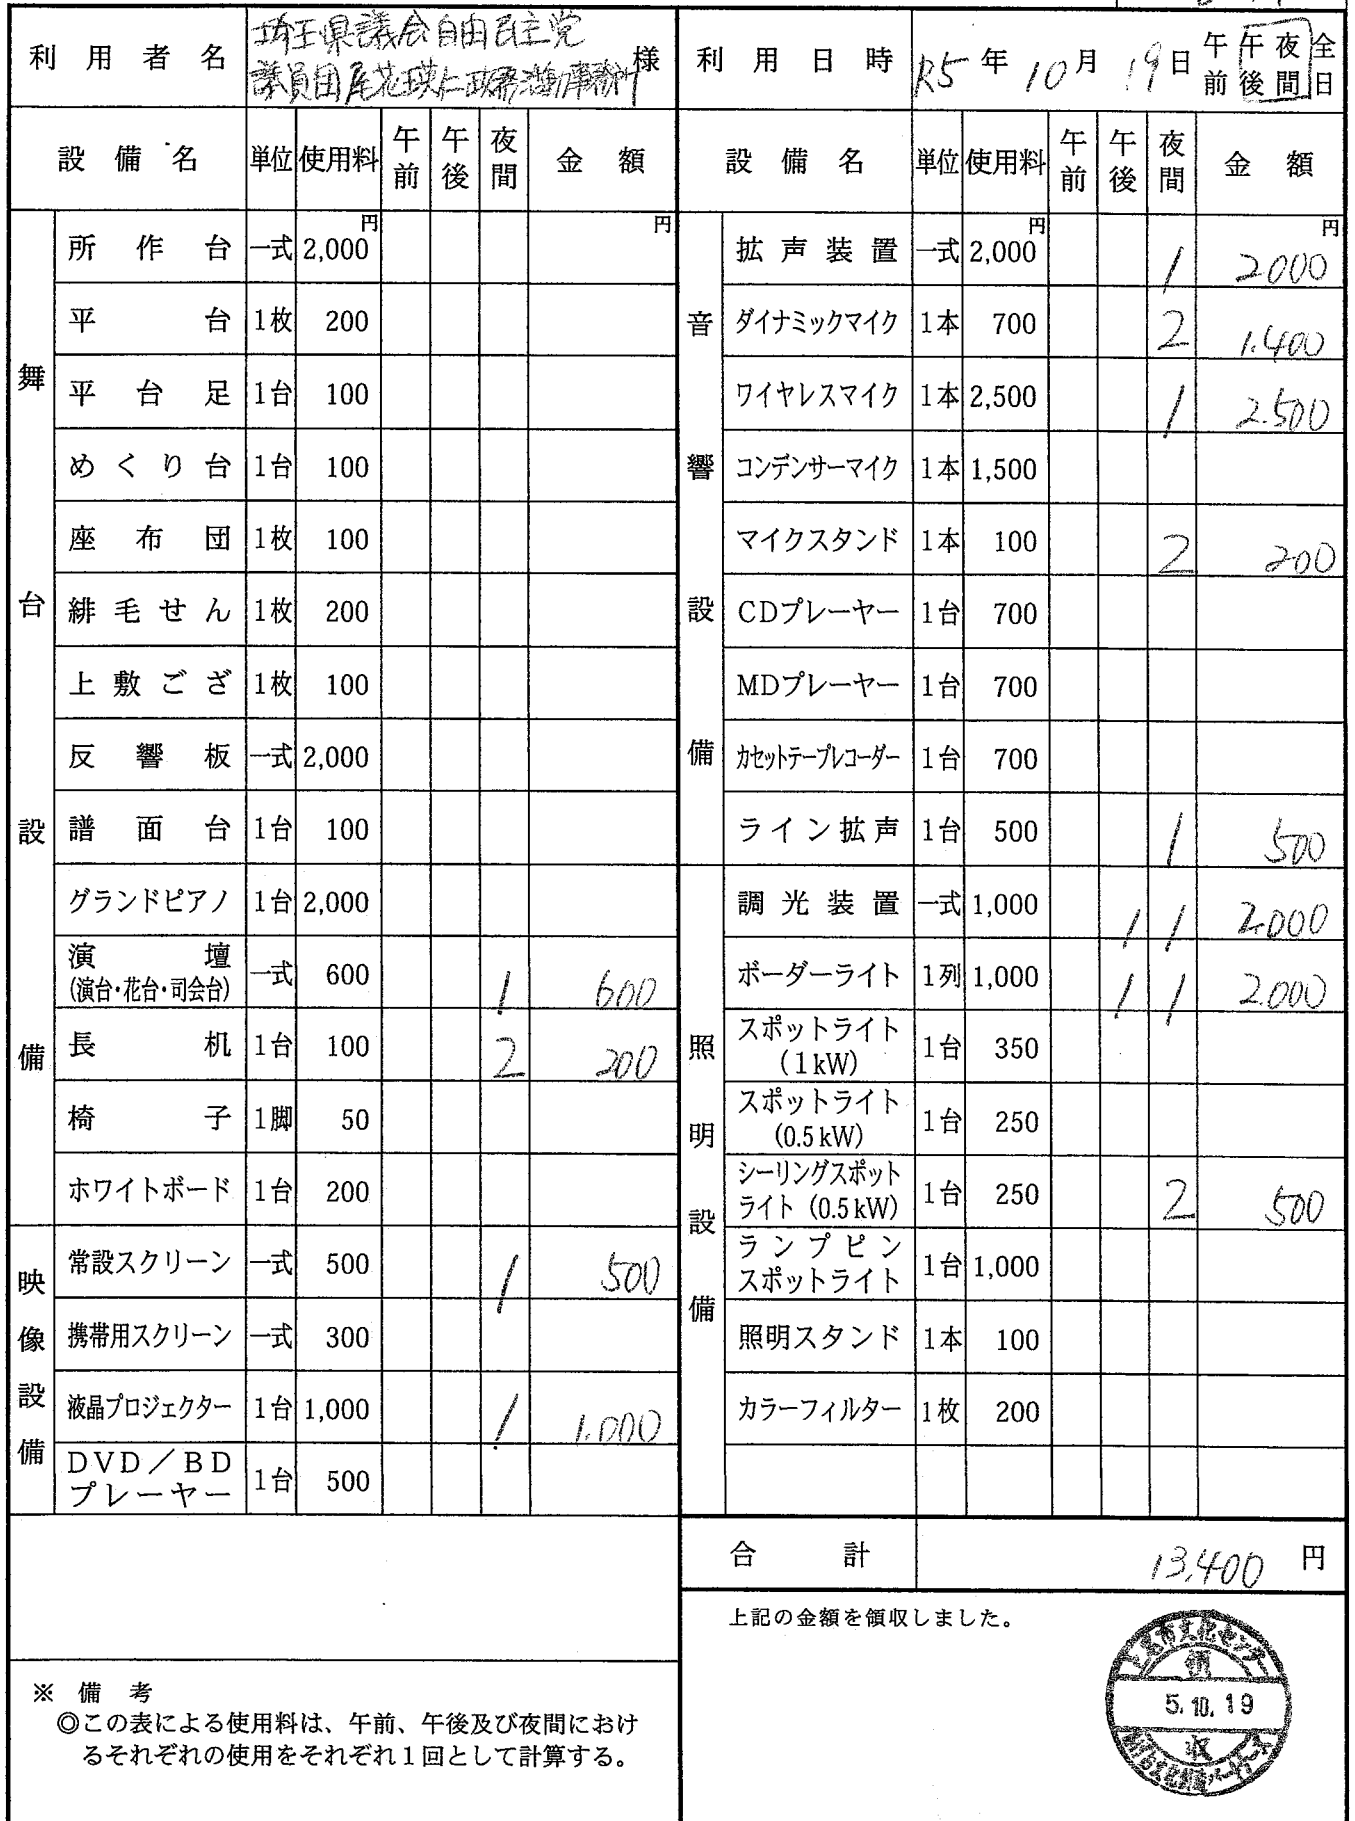 利用者名 埼玉県議会自由民主党
議員団尾花瑛仁政務活動事務所 様
利用日時 R5年 10月 19日 午前 午後 夜間 全日
設備名 単位 使用料 午前 午後 夜間 金額
舞台設備
所作台 一式 2,000円 円
平台 1枚 200
平台足 1台 100
めくり台 1台 100
座布団 1枚 100
緋毛せん 1枚 200
上敷ござ 1枚 100
反響板 一式 2,000
譜面台 1台 100
グランドピアノ 1台 2,000
演壇
(演台・花台・司会台) 一式 600 1 600
長机 1台 100 2 200
椅子 1脚 50
ホワイトボード 1台 200
映像設備
常設スクリーン 一式 500 1 500
携帯用スクリーン 一式 300
液晶プロジェクター 1台 1,000 1 1.000
DVD/BD
プレーヤー 1台 500
設備名 単位 使用料 午前 午後 夜間 金額
音響設備
拡声装置 一式 2,000円 1 2000円
ダイナミックマイク 1本 700 2 1.400
ワイヤレスマイク 1本 2,500 1 2.500
コンデンサーマイク 1本 1,500
マイクスタンド 1本 100 2 200
CDプレーヤー 1台 700
MDプレーヤー 1台 700
カセットテープレコーダー 1台 700
ライン拡声 1台 500 1 500
照明設備
調光装置 一式 1,000 1 1 2.000
ボーダーライト 1列 1,000 1 1 2.000
スポットライト
(1kW) 1台 350
スポットライト
(0.5kW) 1台 250
シーリングスポット
ライト(0.5kW) 1台 250 2 500
ランプピン
スポットライト 1台 1,000
照明スタンド 1本 100
カラーフィルター 1枚 200
合計 13,400 円
上記の金額を領収しました。
上尾市文化センター
領
5.10.19
収
※ 備考
◎この表による使用料は、午前、午後及び夜間におけ
るそれぞれの使用をそれぞれ1回として計算する。